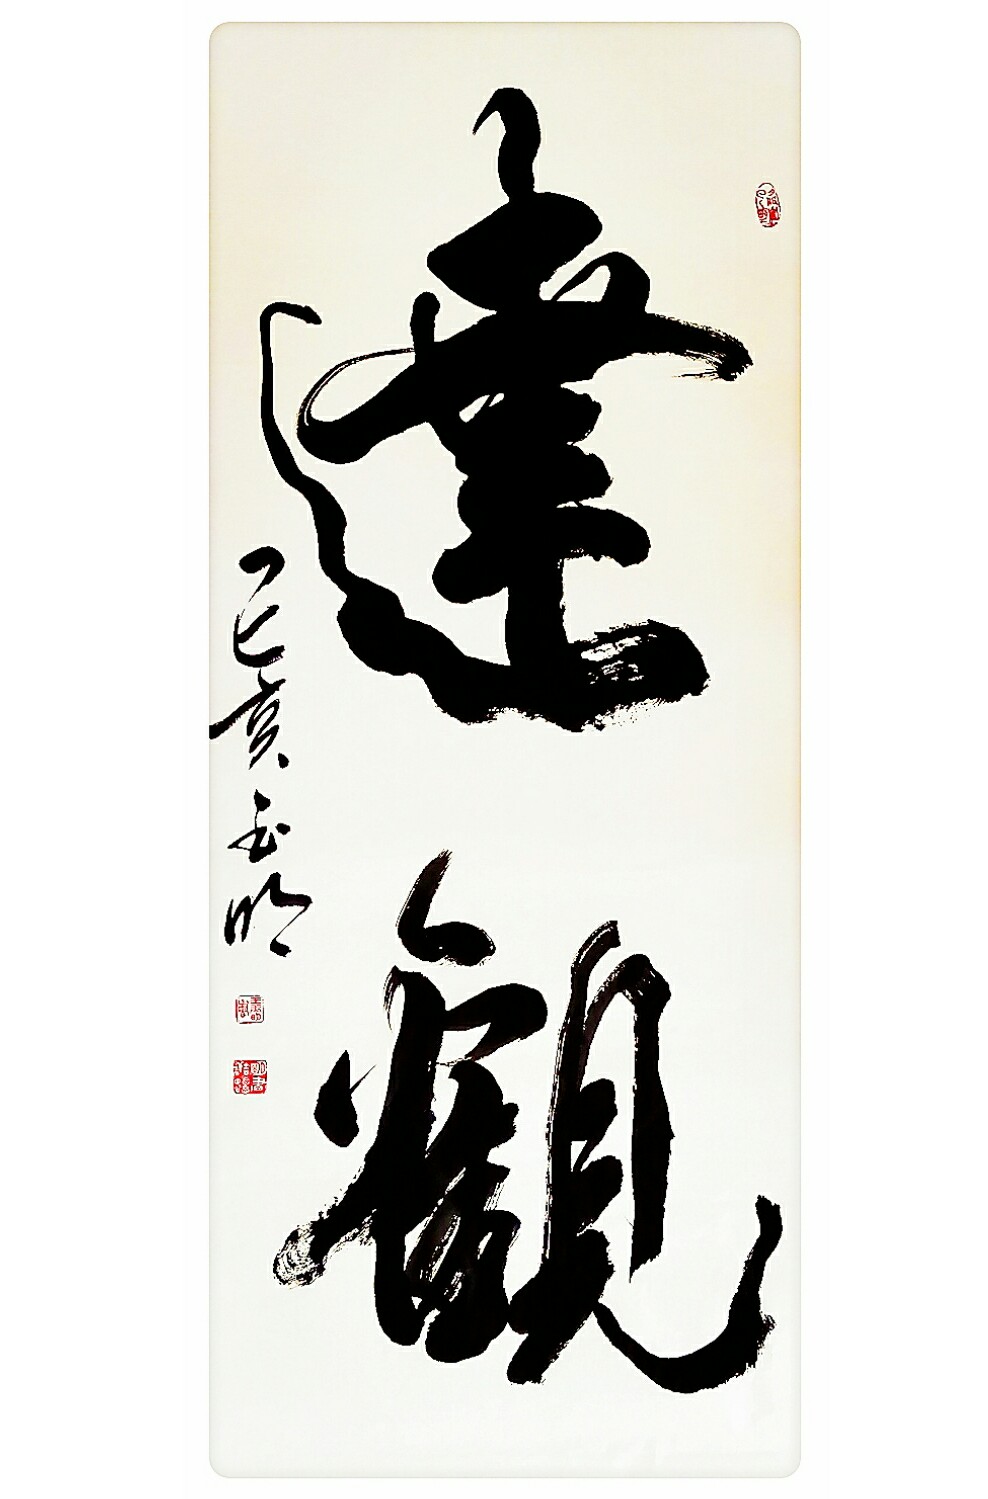 達觀
己亥玉明